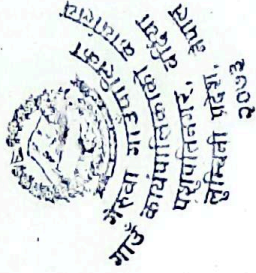 गेरुवा गाउँपालिका
गाउँ कार्यपालिकाको कार्यालय
बर्दिया
लुम्बिनी प्रदेश, नेपाल
२०७३